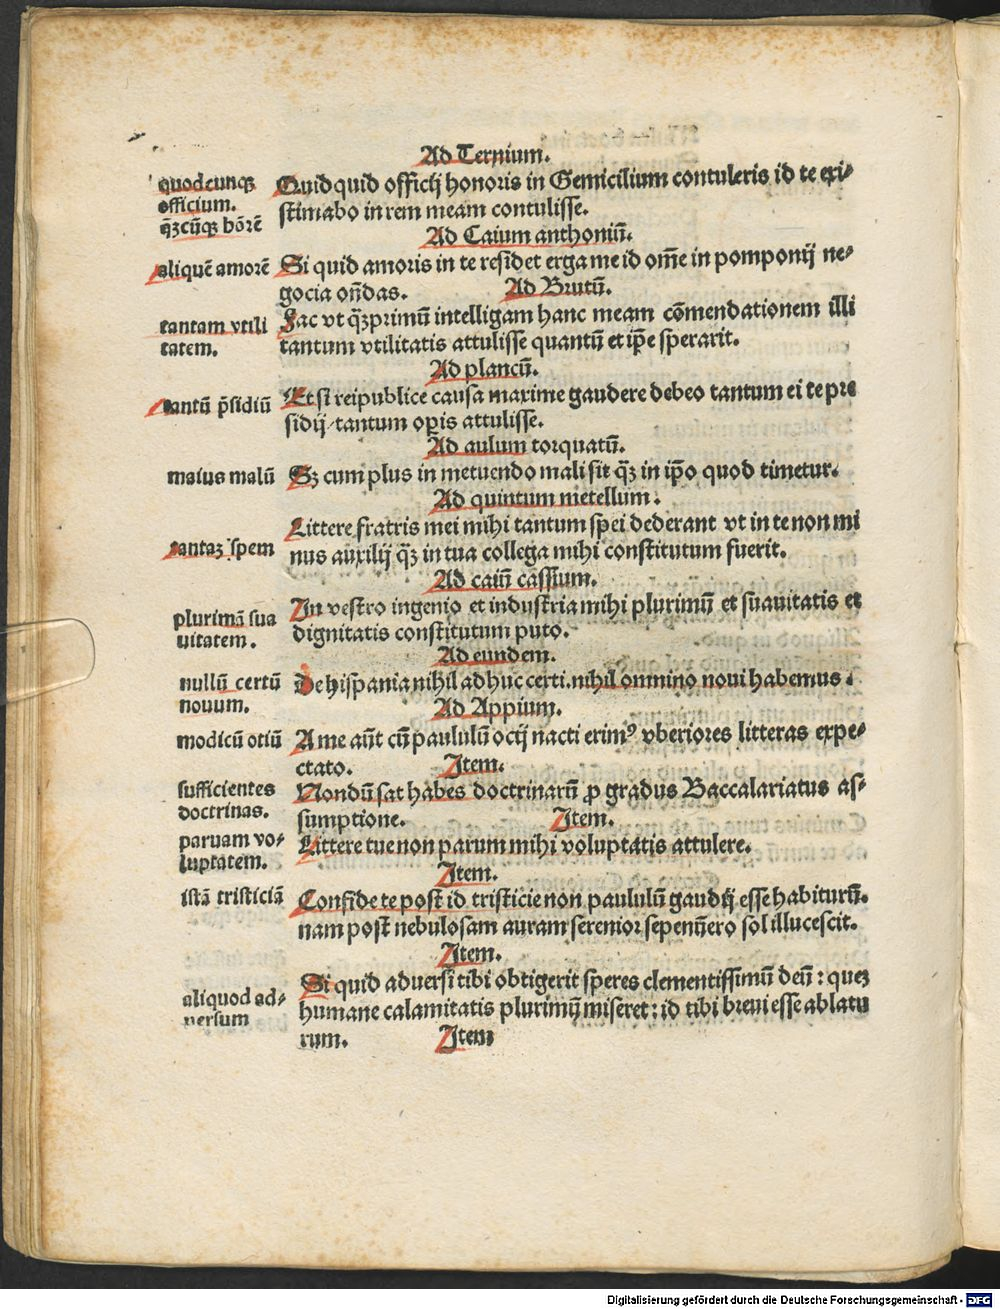 Ad Ternium.
quodcunqȝ
officium.
q̄ȝcūqȝ hōrē
Quidquid officij honoris in Gemicilium contuleris id te exi⸗
stimabo in rem meam contulisse.
Ad Caium anthoniū.
aliquē amorē
Si quid amoris in te residet erga me id om̄e in pomponij ne⸗
gocia on̄das. Ad Brutū.
tantam vtili
tatem.
Fac vt q̄ȝprimū intelligam hanc meam cōmendationem illi
tantum vtilitatis attulisse quantū et ip̄e sperarit.
Ad plancū.
tantū p̄sidiū
Etsi reipublice causa maxime gaudere debeo tantum ei te pre
sidij/tantum oꝑis attulisse.
Ad aulum torquatū.
maius malū
Sȝ cum plus in metuendo mali sit q̄ȝ in ip̄o quod timetur.
Ad quintum metellum.
tantaȝ spem
Littere fratris mei mihi tantum spei dederant vt in te non mi
nus auxilij q̄ȝ in tua collega mihi constitutum fuerit.
Ad caiū cassium.
plurimā sua
uitatem.
In vestro ingenio et industria mihi plurimū et suauitatis et
dignitatis constitutum puto.
Ad eundem.
nullū certū
nouum.
De hispania nihil adhuc certi.nihil omnino noui habemus.
Ad Appium.
modicū otiū
A me aūt cū paululū ocij nacti erimꝰ vberiores litteras expe⸗
ctato. Item.
sufficientes
doctrinas.
Nondū sat habes doctrinarū ꝓ gradus Baccalariatus as⸗
sumptione. Item.
paruam vo⸗
luptatem.
Littere tue non parum mihi voluptatis attulere.
Item.
istā tristiciā
Confide te post id tristicie non paululū gaudij esse habiturū.
nam post nebulosam auram serenior sepenūero sol illucescit.
Item.
aliquod ad⸗
uersum
Si quid aduersi tibi obtigerit speres clementissimū deū: queȝ
humane calamitatis plurimū miseret: id tibi breui esse ablatu
rum. Item
Digitalisierung gefördert durch die Deutsche Forschungsgemeinschaft - DFG